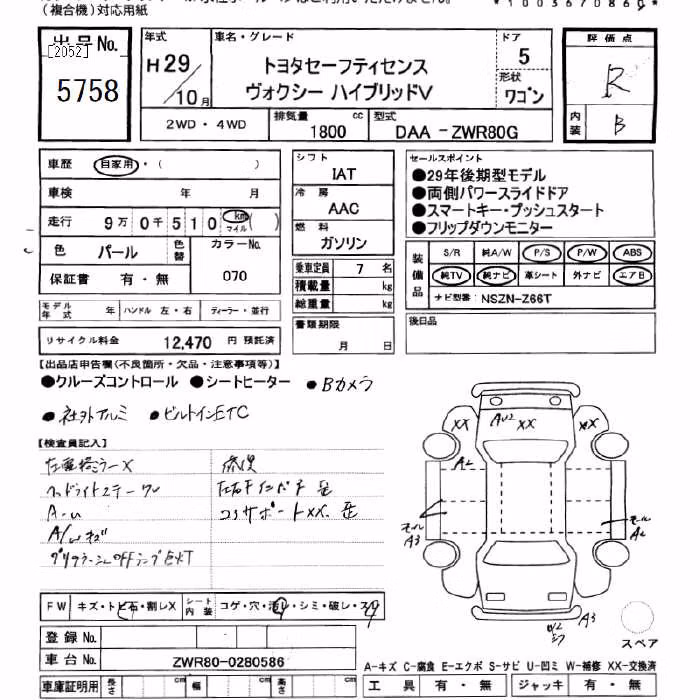 (複合機)対応用紙
出品No.
[2052]
5758
年式 車名・グレード ドア 評価点
H29 トヨタセーフティセンス 5 R
10月 ヴォクシー ハイブリッドV 形状 ワゴン
2WD・4WD 排気量 1800 cc 型式 DAA-ZWR80G 内装 B
車歴 自家用・( )
車検 年 月
走行 9万0千510 km マイル ( )
色 パール 色替 カラーNo. 070
保証書 有・無
モデル年式 年 ハンドル 左・右 ディーラー・並行
リサイクル料金 12,470 円 預託済
シフト IAT
冷房 AAC
燃料 ガソリン
乗車定員 7 名
積載量 kg
総重量 kg
書類期限
月 日
セールスポイント
●29年後期型モデル
●両側パワースライドドア
●スマートキー・プッシュスタート
●フリップダウンモニター
装備品 S/R 純A/W P/S P/W ABS
純TV 純ナビ 革シート 外ナビ エアB
ナビ型番: NSZN-Z66T
後日品
【出品店申告欄(不良箇所・欠品・注意事項等)】
●クルーズコントロール ●シートヒーター ●Bカメラ
●社外アルミ ●ビルトインETC
【検査員記入】
ヘッドライトステー
コアサポートXX
FW キズ・トビ石・割レX シート内装 コゲ・穴・汚レ・シミ・破レ・スレ
登録No.
車台No. ZWR80-0280586
車庫証明用 長さ cm 幅 cm 高さ cm
XX AU2 XX XX
A2
モール A3
モール A2
A3
スペア
A-キズ C-腐食 E-エクボ S-サビ U-凹ミ W-補修 XX-交換済
工具 有・無 ジャッキ 有・無